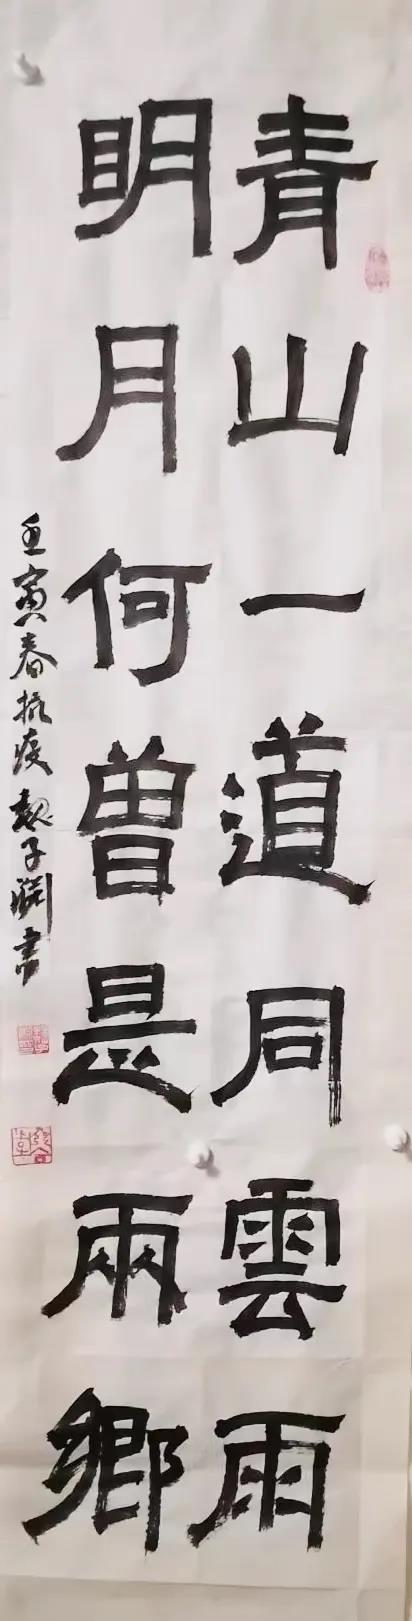 青山一道同雲雨
明月何曾是兩鄉
壬寅春抗疫魏子開書